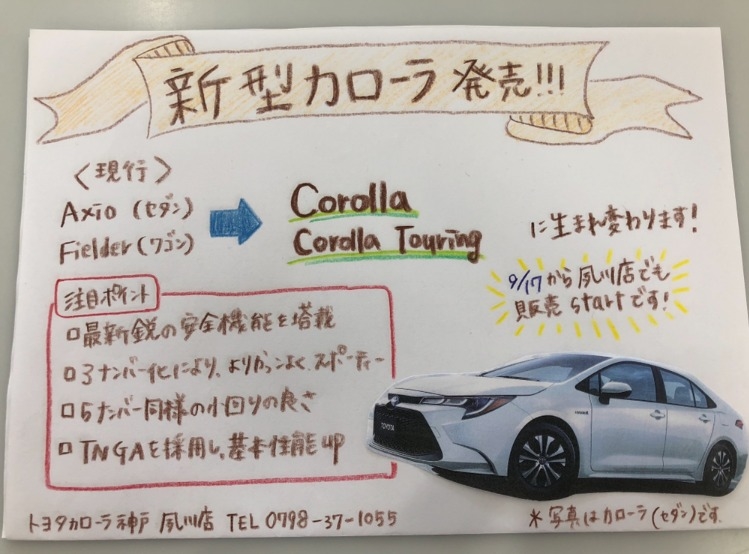 新型カローラ発売!!!
〈現行〉
Axio (セダン)
Fielder(ワゴン)
Corolla
Corolla Touring
に生まれ変わります!
9/17から夙川店でも
販売startです!
注目ポイント
□最新鋭の安全機能を搭載
□3ナンバー化により、よりかっこよく、スポーティー
□5ナンバー同様の小回りの良さ
□TNGAを採用し、基本性能up
TOYOTA
トヨタカローラ神戸 夙川店 TEL 0798-37-1055
*写真はカローラ(セダン)です。